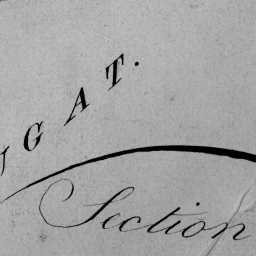 GAT.
Section